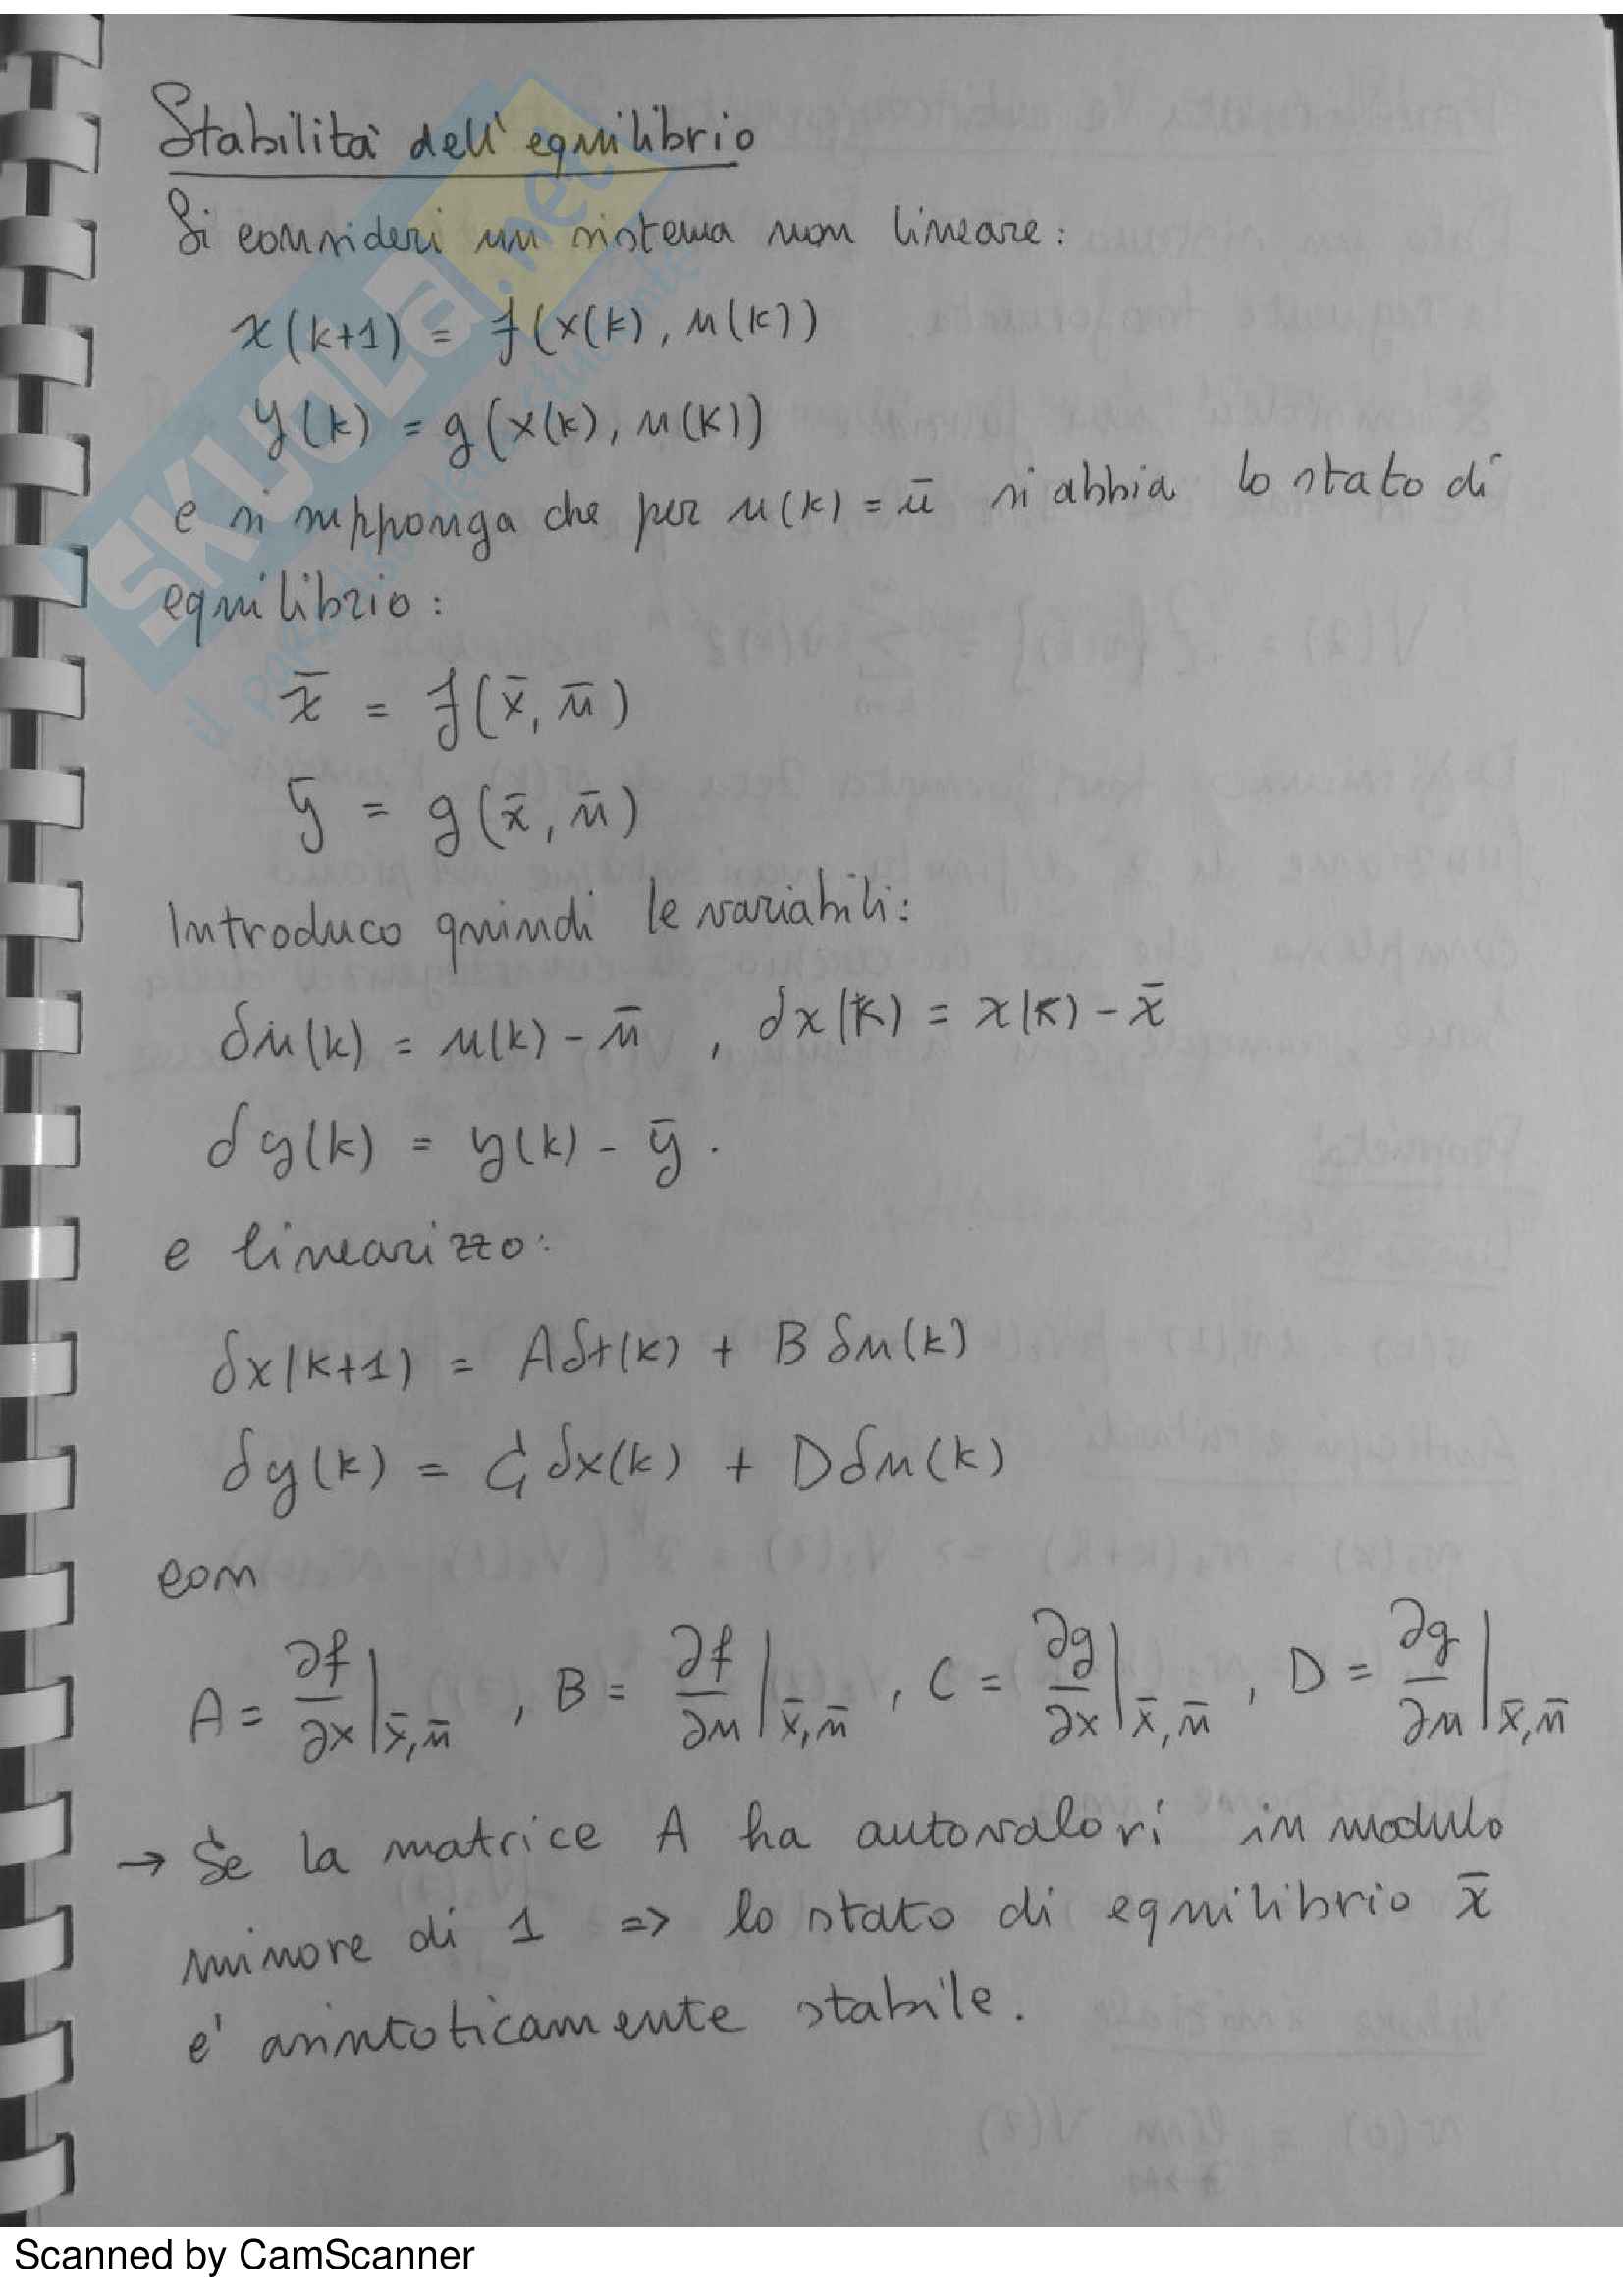 Stabilità dell'equilibrio
Si consideri un sistema non lineare:
x(k+1) = f(x(k), u(k))
y(k) = g(x(k), u(k))
e si supponga che per u(k) = ū si abbia lo stato di
equilibrio:
x̄ = f(x̄, ū)
ȳ = g(x̄, ū)
Introduco quindi le variabili:
δu(k) = u(k) - ū , δx(k) = x(k) - x̄
δy(k) = y(k) - ȳ .
e linearizzo:
δx(k+1) = Aδx(k) + Bδu(k)
δy(k) = Cδx(k) + Dδu(k)
con
A = ∂f/∂x |x̄,ū , B = ∂f/∂u |x̄,ū , C = ∂g/∂x |x̄,ū , D = ∂g/∂u |x̄,ū
→ Se la matrice A ha autovalori in modulo
minore di 1 => lo stato di equilibrio x̄
e' asintoticamente stabile.
SKUOLA.net
Scanned by CamScanner